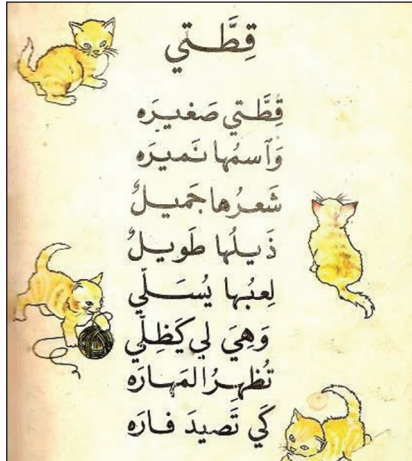 قِطَّتي
قِطَّتي صَغيرَه
وَٱسمُها نَميرَه
شَعرُها جَميلٌ
ذَيلُها طَويلٌ
لِعبُها يُسَلّي
وَهِيَ لي كَظِلّي
تُظهِرُ المَهارَه
كَي تَصيدَ فارَه